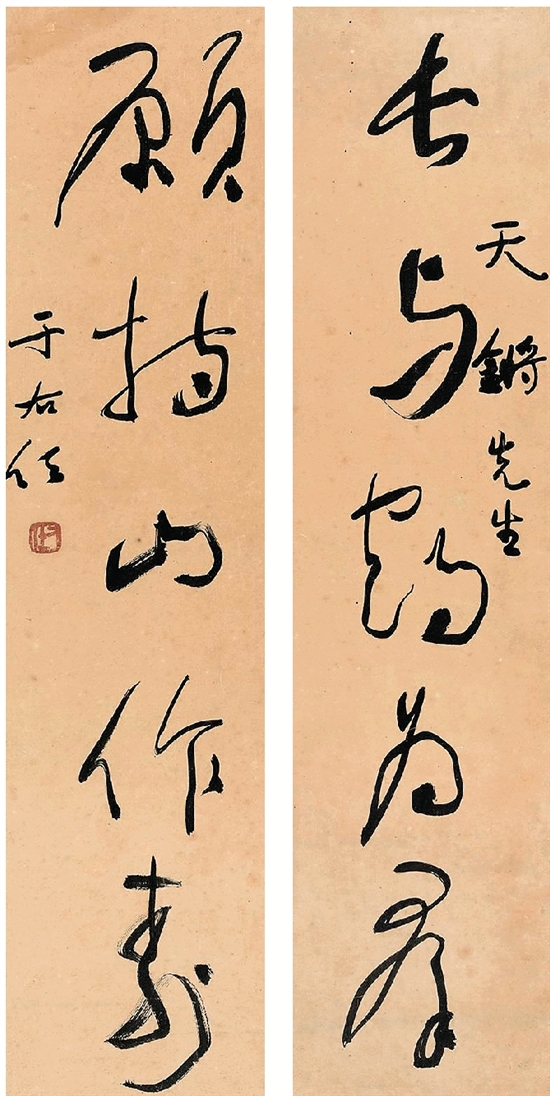 天锵先生
长与鹤为群
愿持山作寿
于右任